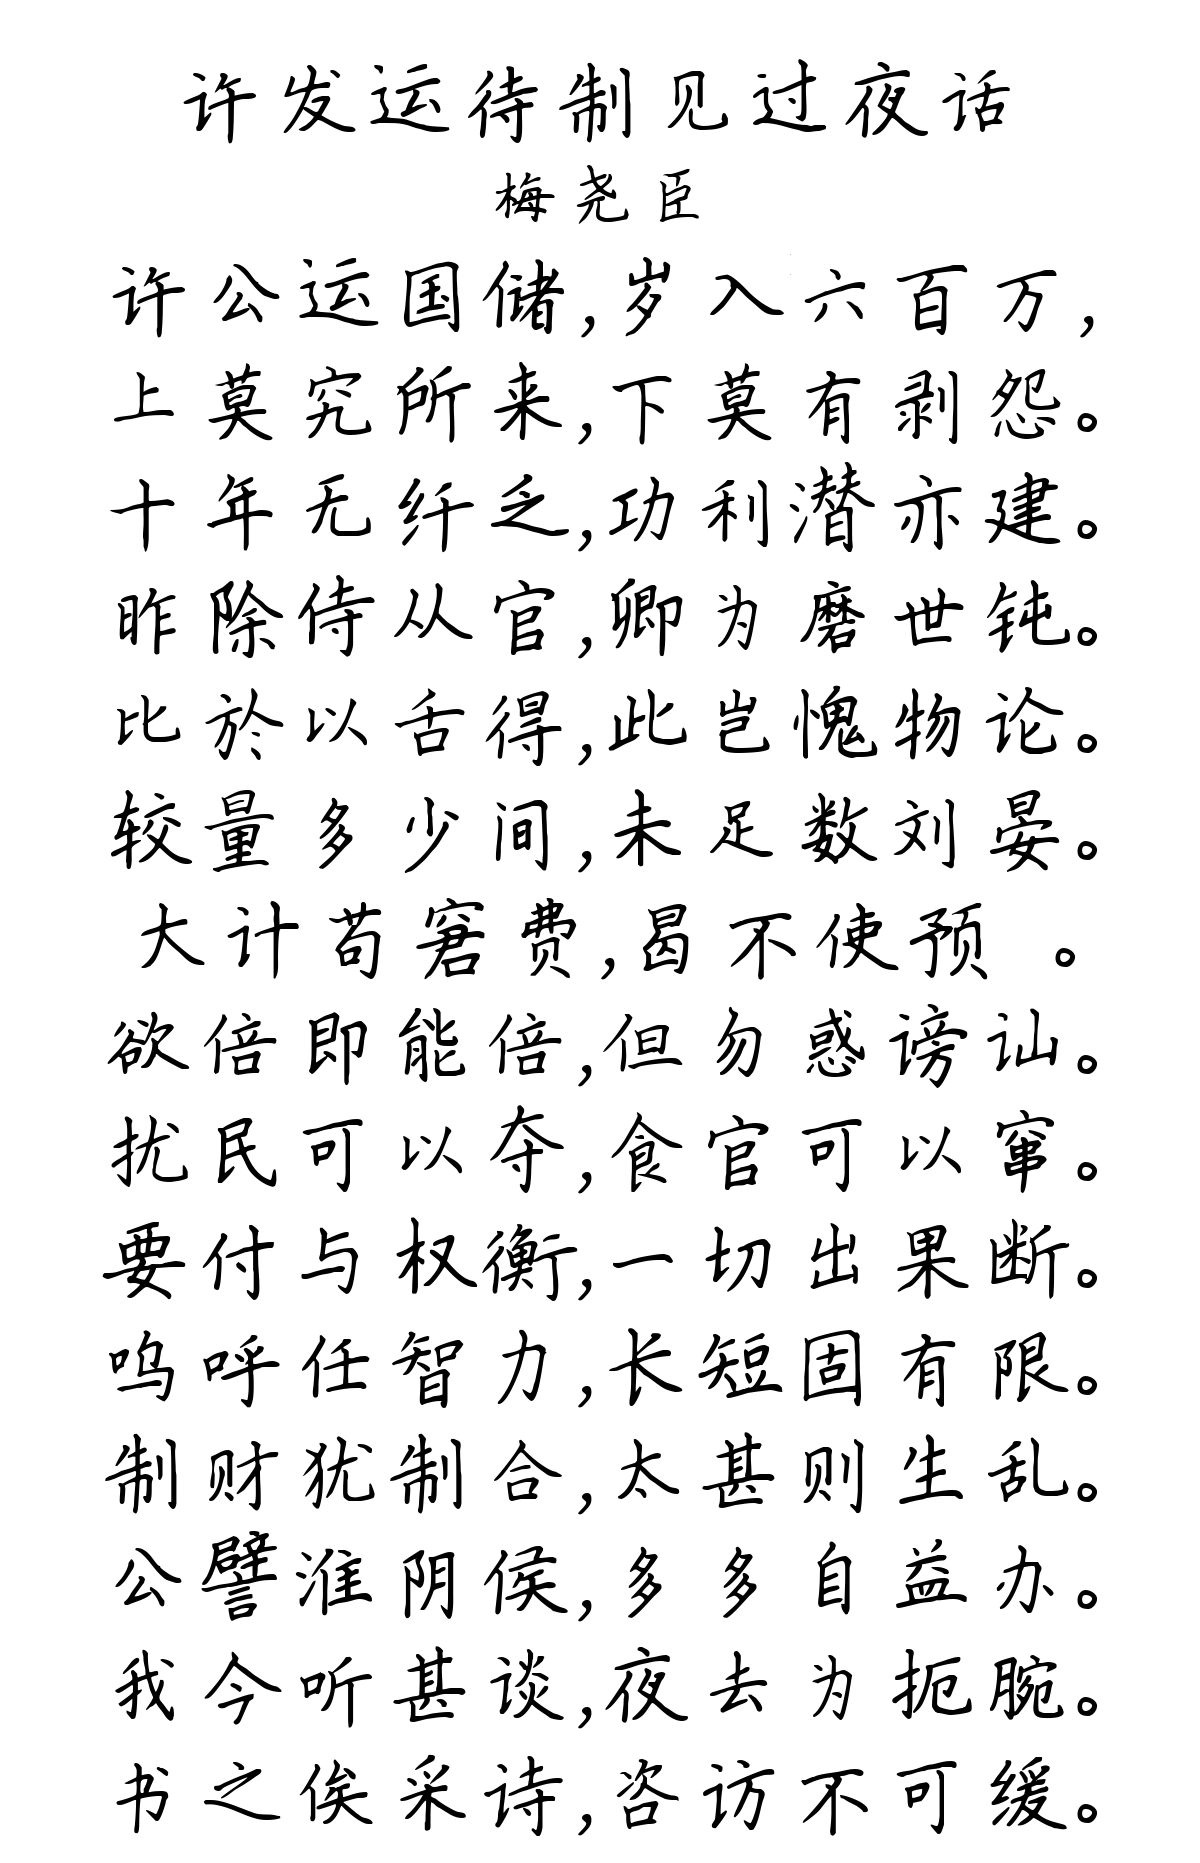 许发运待制见过夜话
梅尧臣
许公运国储,岁入六百万,
上莫究所来,下莫有剥怨。
十年无纤乏,功利潜亦建。
昨除侍从官,卿为磨世钝。
比於以舌得,此岂愧物论。
较量多少间,未足数刘晏。
大计苟窘费,曷不使预 。
欲倍即能倍,但勿惑谤讪。
扰民可以夺,食官可以窜。
要付与权衡,一切出果断。
呜呼任智力,长短固有限。
制财犹制合,太甚则生乱。
公譬淮阴侯,多多自益办。
我今听甚谈,夜去为扼腕。
书之俟采诗,咨访不可缓。